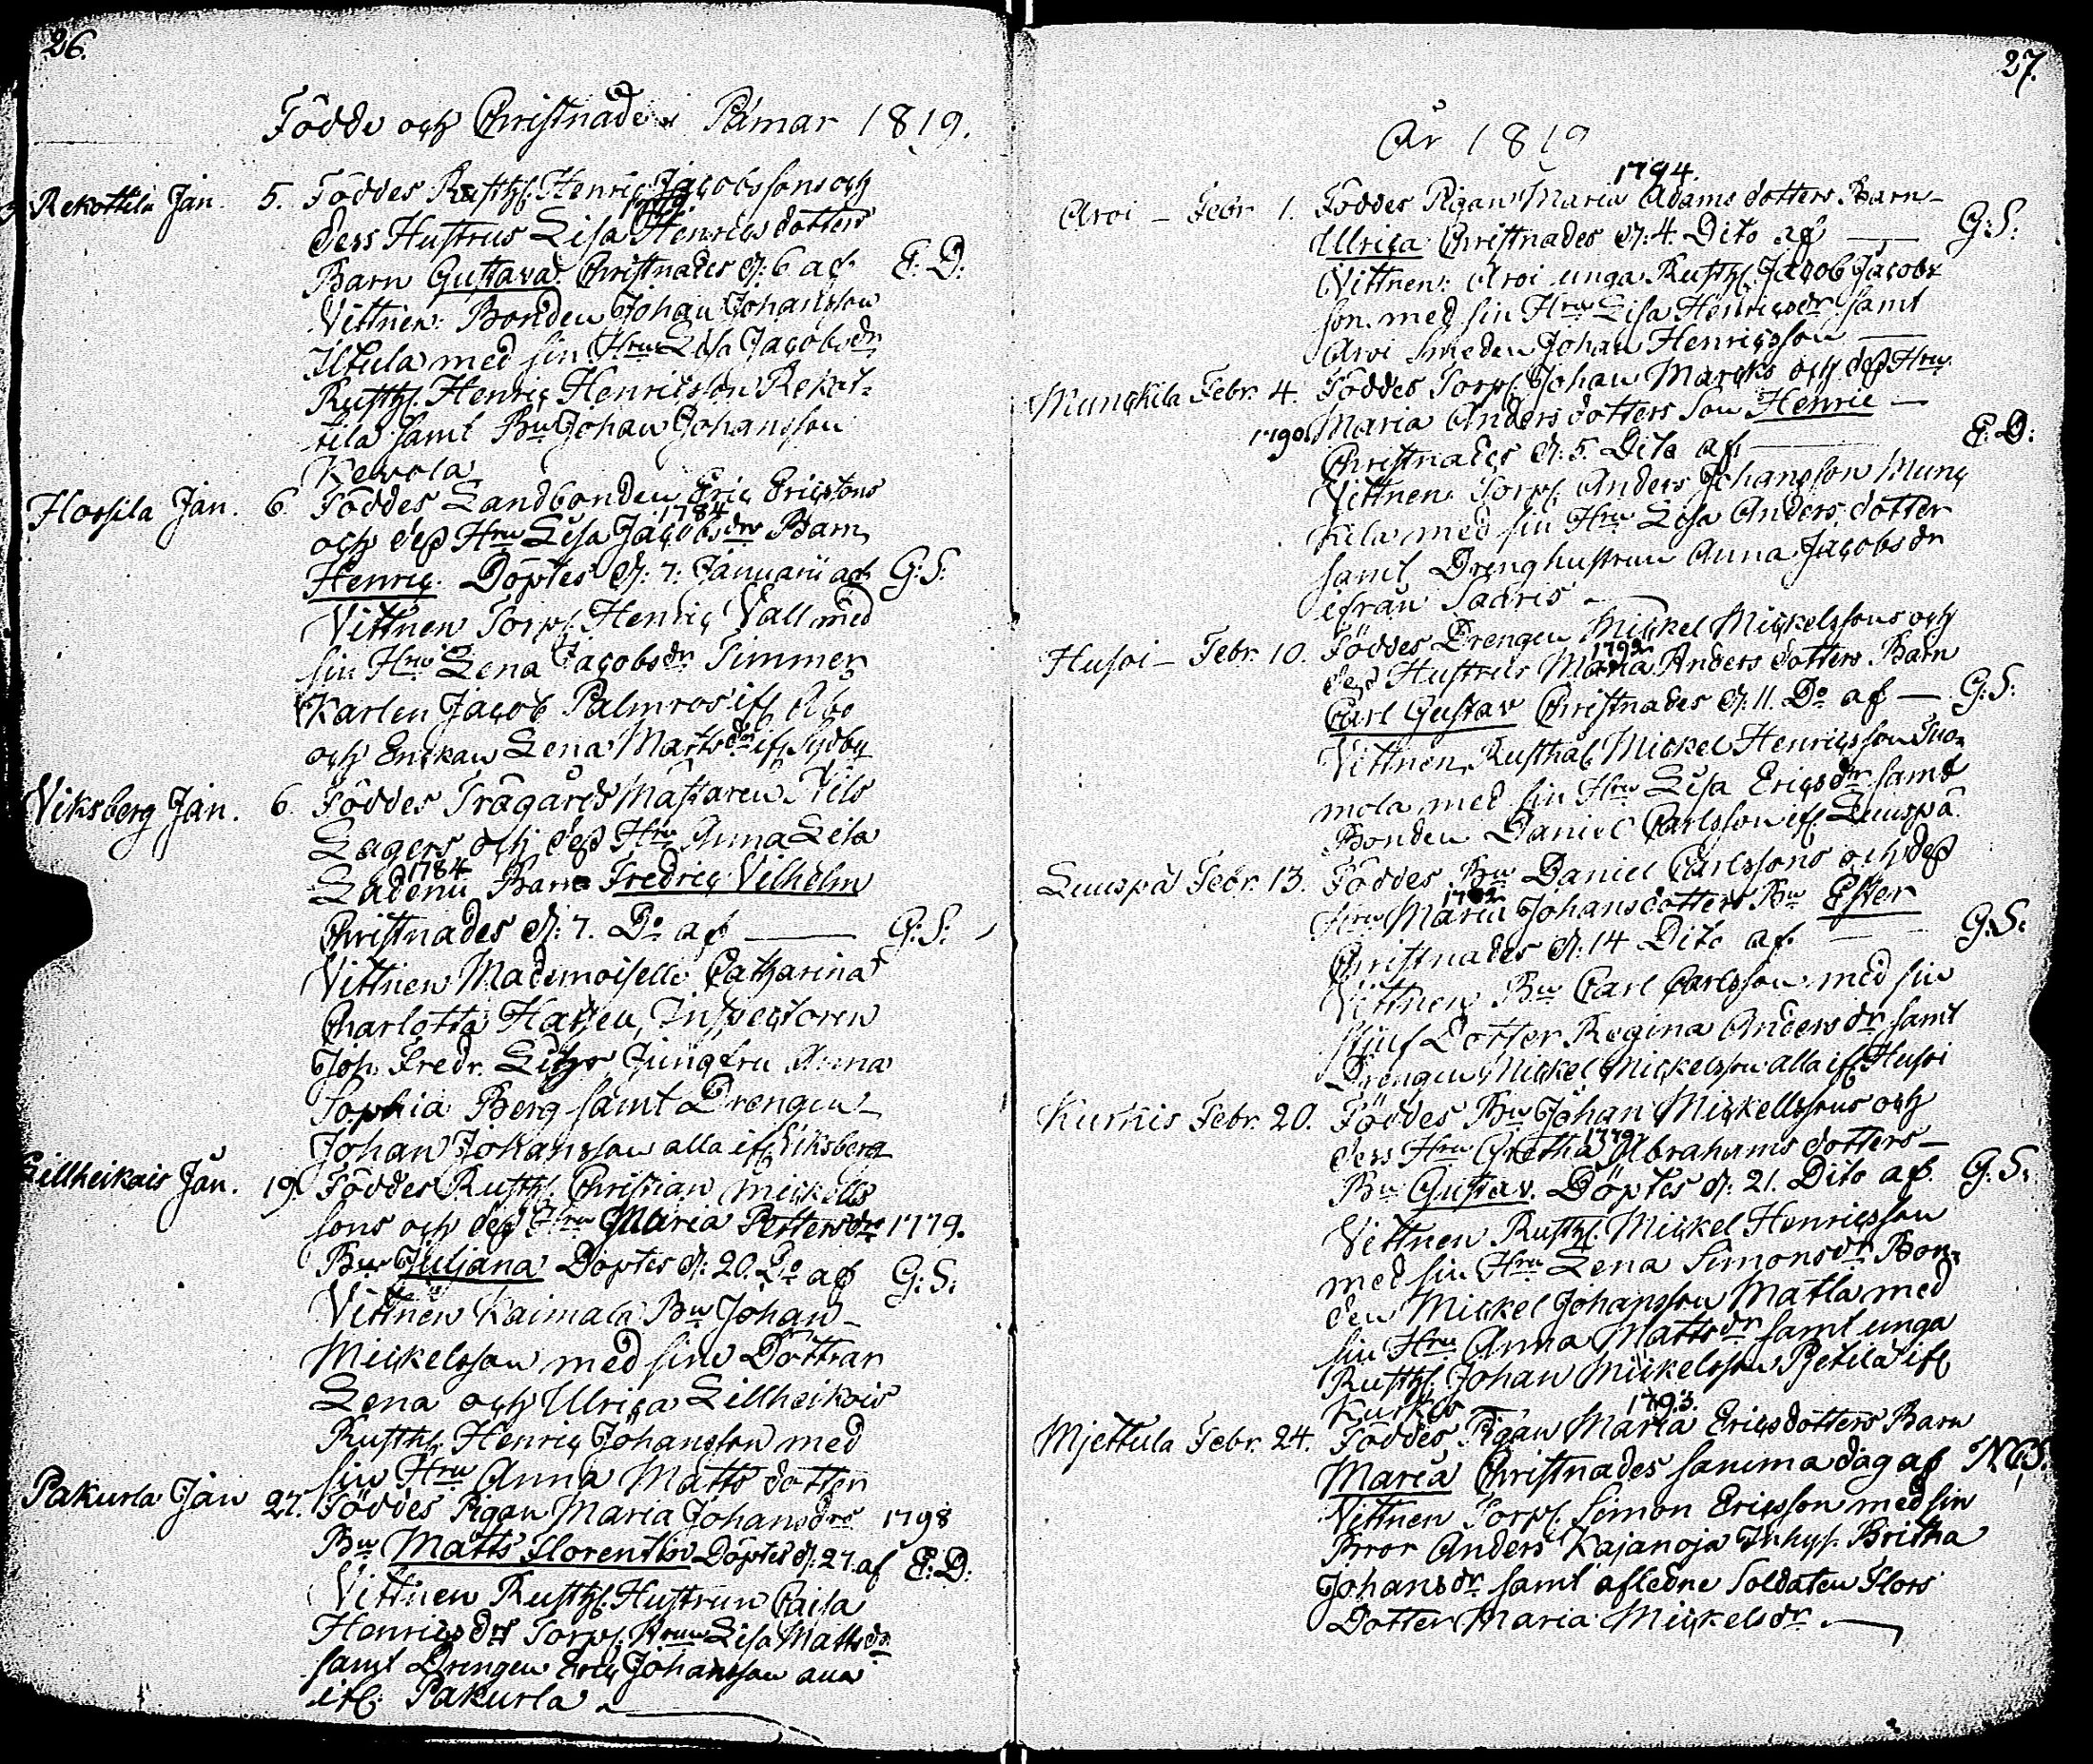 26.
Födde och Christnade i Pämar 1819.
Rekottila Jan. 5. Föddes Rusth. Henric Jacobssons och
dess Hustrus Lisa Henricsdotters
Barn Gustava. Christnades d: 6 af E: D:
Vittnen: Bonden Johan Johansson
med sin Hru Lisa Jacobsdr
Rusth. Henric Henricsson Rekot-
tila samt Bn Johan Johansson
Kevola
Hossila Jan. 6. Föddes Landbonden Eric Ericssons
1784
och dess Hru Lisa Jacobsdrs Barn
Henric. Döptes d: 7. Januarii af G: S:
Vittnen Torp. Henric Vall med
sin Hru Lena Jacobsdr Timmer
Karlen Jacob Palmros if. Åbo
och Enckan Lena Mattsdr if. Sydby
Viksberg Jan. 6. Föddes Trägårds Mästaren Nils
Lagers och dess Hru Anna Lisa
1784
Barn Fredric Vilhelm
Christnades d: 7. Do af — G: S:
Vittnen Mademoiselle Catharina
Charlotta Inspectoren
Joh. Fredr. Jungfru Anna
Sophia Berg samt Drengen
Johan Johansson alla if. Viksberg
Lillheikois Jan. 19. Föddes Rusth. Christian Mickels
sons och dess Hru Maria Pettersdrs 1779.
Bn Juliana Döptes d: 20. Do af G: S:
Vittnen Kaimala Bn Johan
Mickelsson med sine Döttrar
Lena och Ulrica Lillheikois
Rusth. Henric Johansson med
sin Hru Anna Matts dotter
Pakurla Jan 27. Föddes Pigan Maria Johansdrs 1798
Bn Matts Florentin Döptes d: 27. af E: D:
Vittnen Rusth. Hustrun Caisa
Henricsdr Torp. Hrun Lisa Mattsdr
samt Drengen Eric Johansson alla
if. Pakurla
27.
År 1819
1794.
Aroi — Febr. 1. Föddes Pigan Maria Adams dotters Barn —
Ulrica Christnades d: 4. Dito af — G: S:
Vittnen: Aroi unga Rusth. Jacob Jacobs
son med sin Hru Lisa Henricsdr samt
Aroi Smeden Johan Henricsson —
Munckila Febr. 4. Föddes Torp. Johan Marcks och dess Hru
1790. Maria Anders dotters Son Henric —
Christnades d: 5. Dito af — E: D:
Vittnen Torp. Anders Johansson Munc
kila med sin Hru Lisa Anders dotter
samt Dreng hustrun Anna Jacobsdr
ifrån Saaris —
Husoi — Febr. 10. Föddes Drengen Mickel Mickelssons och
1792
dess Hustrus Maria Anders dotters Barn
Carl Gustav Christnades d: 11. Do af — G: S:
Vittnen Rusthål. Mickel Henricsson Tuo-
mola med sin Hru Lisa Ericsdr samt
Bonden Daniel Carlsson if. Luuspä
Luuspä Febr. 13. Föddes Bn Daniel Carlssons och dess
1782
Hru Maria Johansdotters Bn Ester
Christnades d: 14 Dito af — G: S:
Vittnen Bn Carl Carlsson med sin
stjuf Dotter Regina Andersdr samt
Drengen Mickel Mickelsson alla if. Husoi
Kurkis Febr. 20. Föddes Bn Johan Mickelssons och
1779
dess Hru Gretha Abrahams dotters —
Bn Gustav. Döptes d: 21. Dito af G: S:
Vittnen Rusth. Mickel Henricsson
med sin Hru Lena Simonsdr Bon-
den Mickel Johansson Matla med
sin Hru Anna Mattsdr samt unga
Rusth. Johan Mickelsson Pjetila if.
Kurkis
1793.
Mjettula Febr. 24. Föddes Pigan Maria Ericsdotters Barn
Maria Christnades samma dag af
Vittnen Torp. Simon Ericsson med sin
Bror Anders Kajanoja Inhys. Britha
Johansdr samt afledne Soldaten Flors
Dotter Maria Mickelsdr —